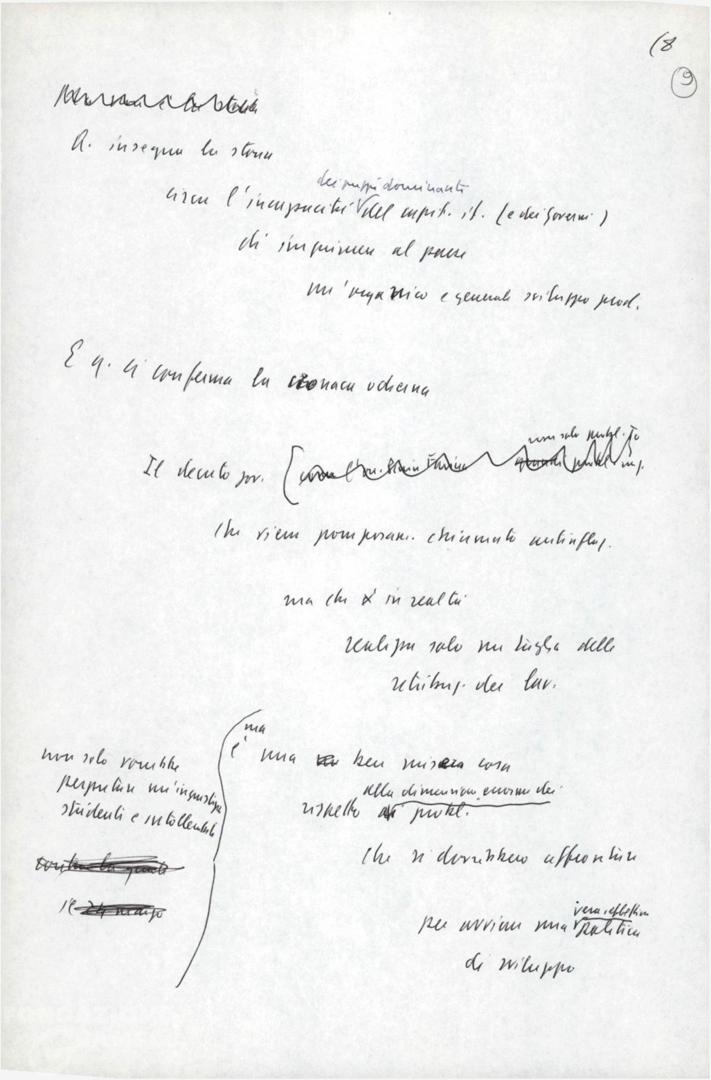 (8
9
R. insegna la storia
dei gruppi dominanti
circa l'incapacità del capit. it. (e dei governi)
di imprimere al paese
un'organico e generale sviluppo prod.
E q. ci conferma la cronaca odierna
non solo probl.
Il decreto gov.
che viene pomposam. chiamato antinflaz.
ma che in realtà
realizza solo un taglia delle
retribuz. dei lav.
ma
è una ben misera cosa
alla dimensione enorme dei
rispetto probl.
che si dovrebbero affrontare
vera
per avviare una politica
di sviluppo
non solo vorrebbe
perpetrare un'ingiustizia
studenti e intellettuali
il 24 marzo